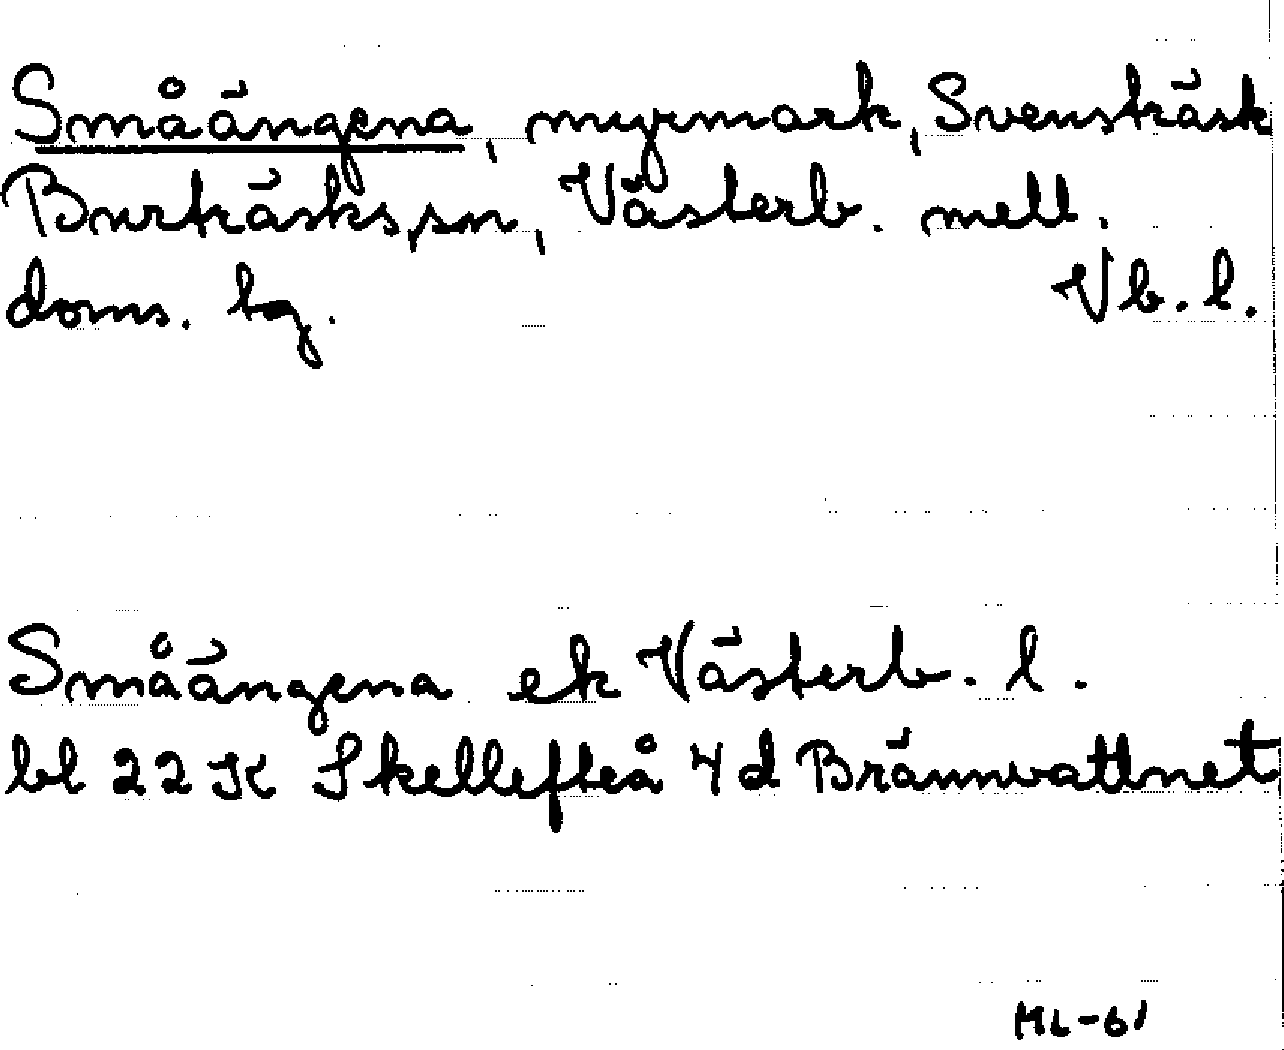 Småängena, myrmark, Svensträsk
Burträsks sn, Västerb. mell.
doms. bg. Vb. l.
Småängena ek Västerb. l.
bl 22 K Skellefteå 4 d Brännvattnet
ML-61